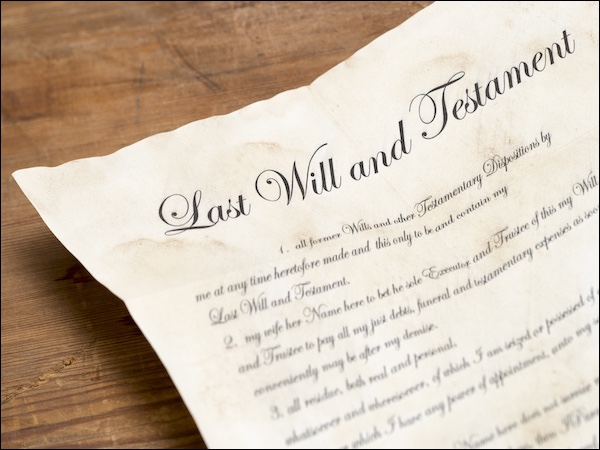 Last Will and Testament
1. all former Wills and other Testamentary Dispositions by
me at any time heretofore made and this only to be and contain my
Last Will and Testament.
2. my wife her Name here to bet he sole Executor and Trustee of this my Will
and Trustee to pay all my just debts, funeral and testamentary expenses as soo
conveniently may be after my demise.
3. all residue, both real and personal,
whatsoever and wheresoever, of which I am seized or possessed of
which I have any power of appointment, unto my
Name here does not survive